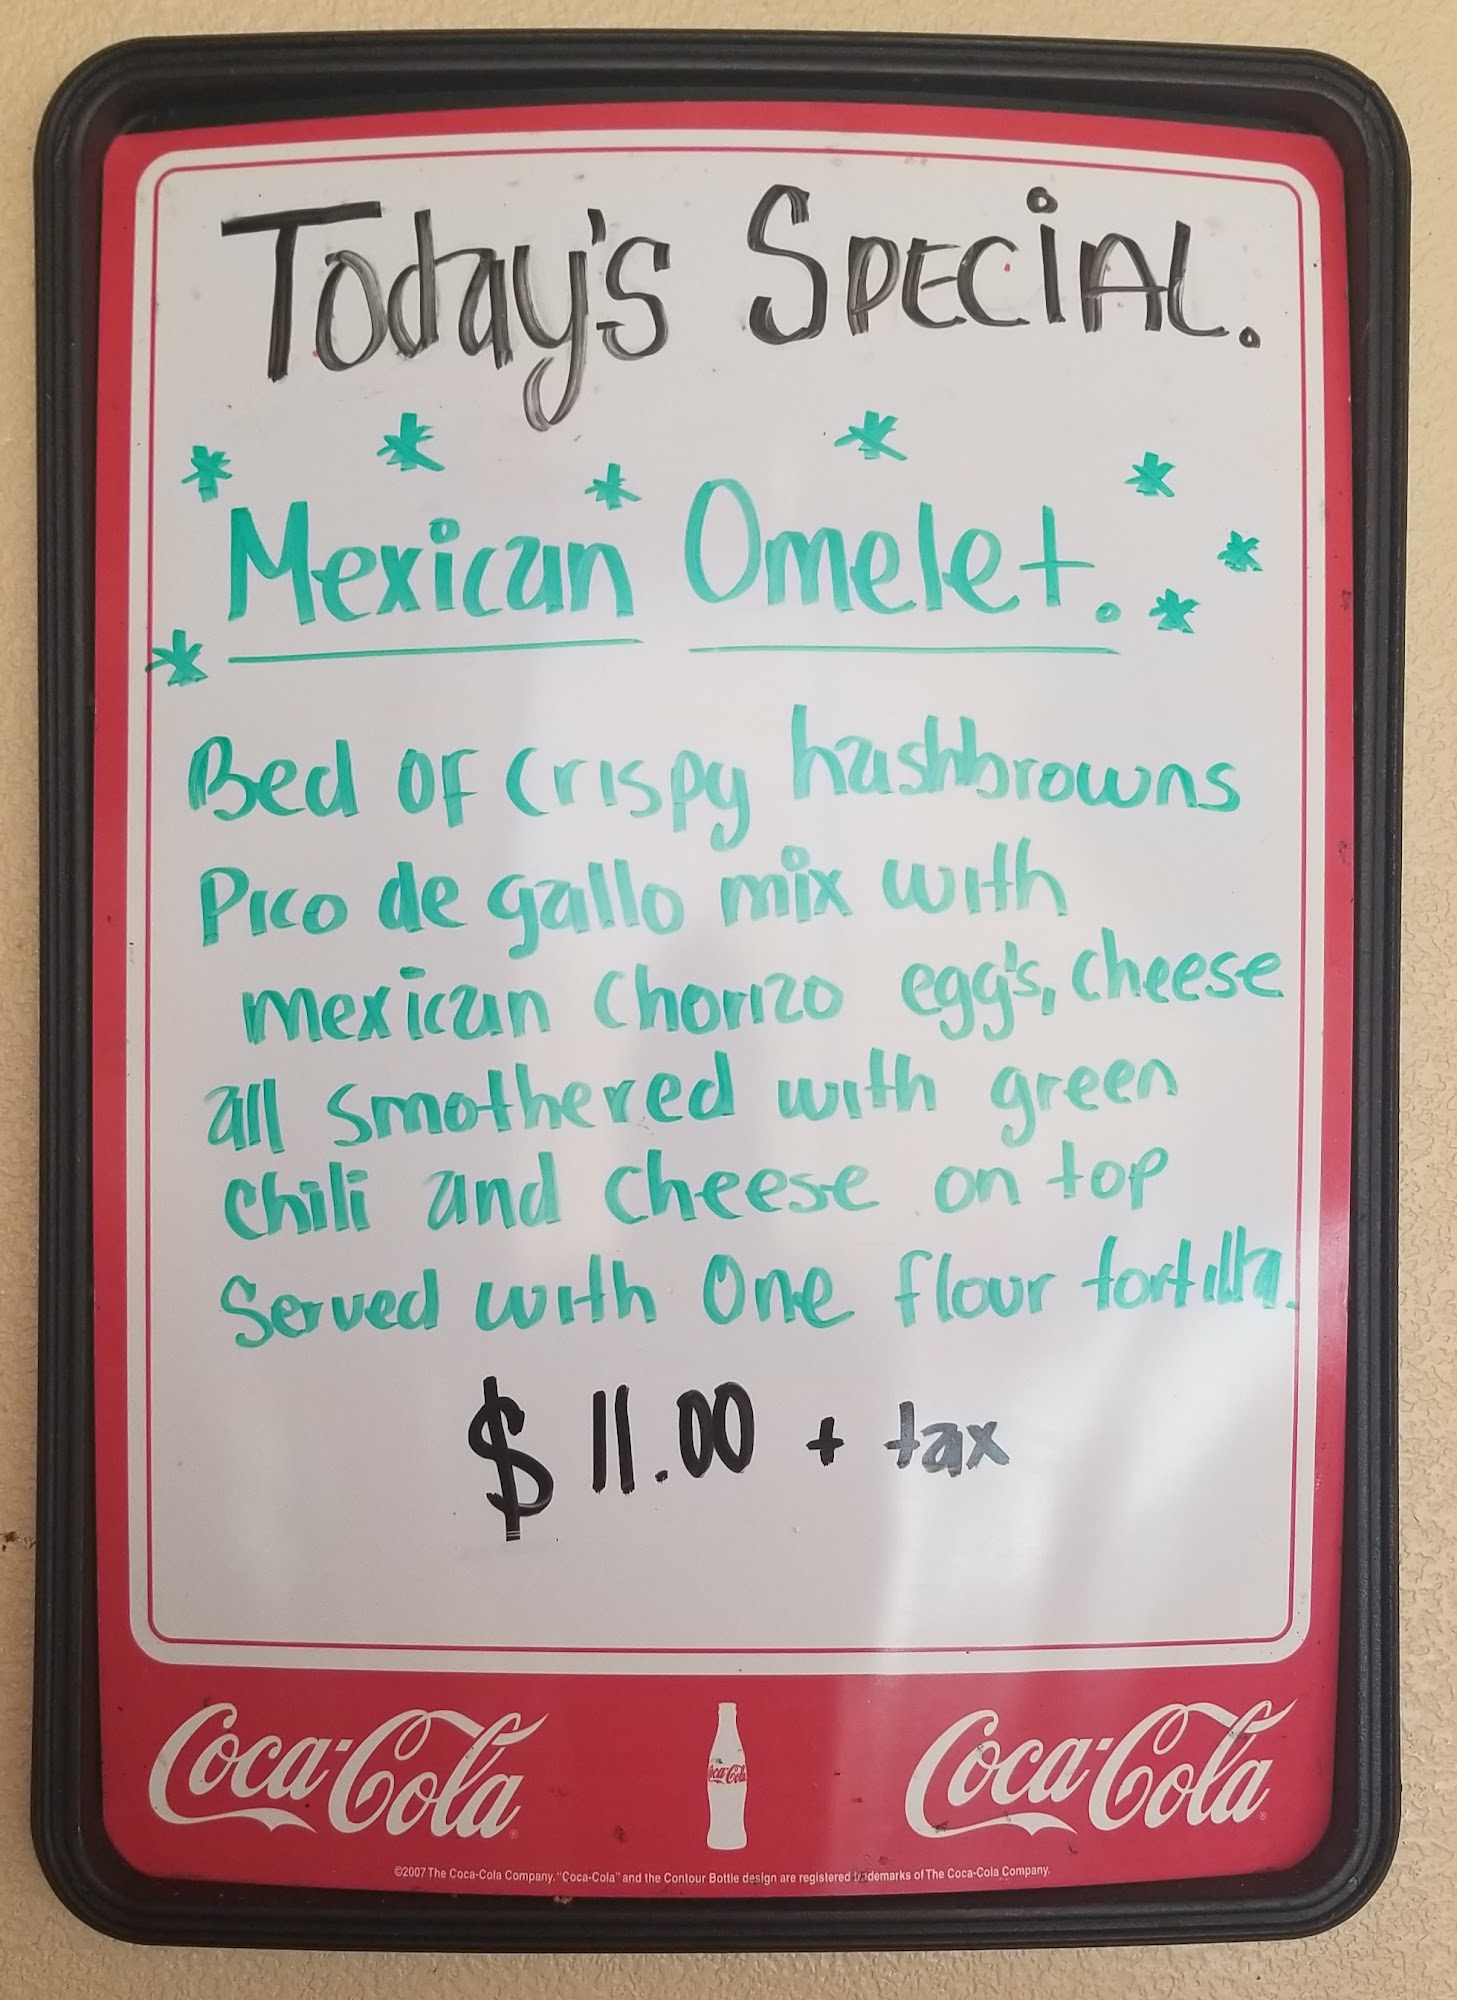 Today's SPECIAL.
Mexican Omelet.
Bed of crispy hashbrowns
Pico de gallo mix with
mexican chorizo egg's, cheese
all smothered with green
chili and cheese on top
Served with One flour tortilla.
$ 11.00 + tax
Coca-Cola Coca-Cola Coca-Cola
©2007 The Coca-Cola Company. "Coca-Cola" and the Contour Bottle design are registered trademarks of The Coca-Cola Company.